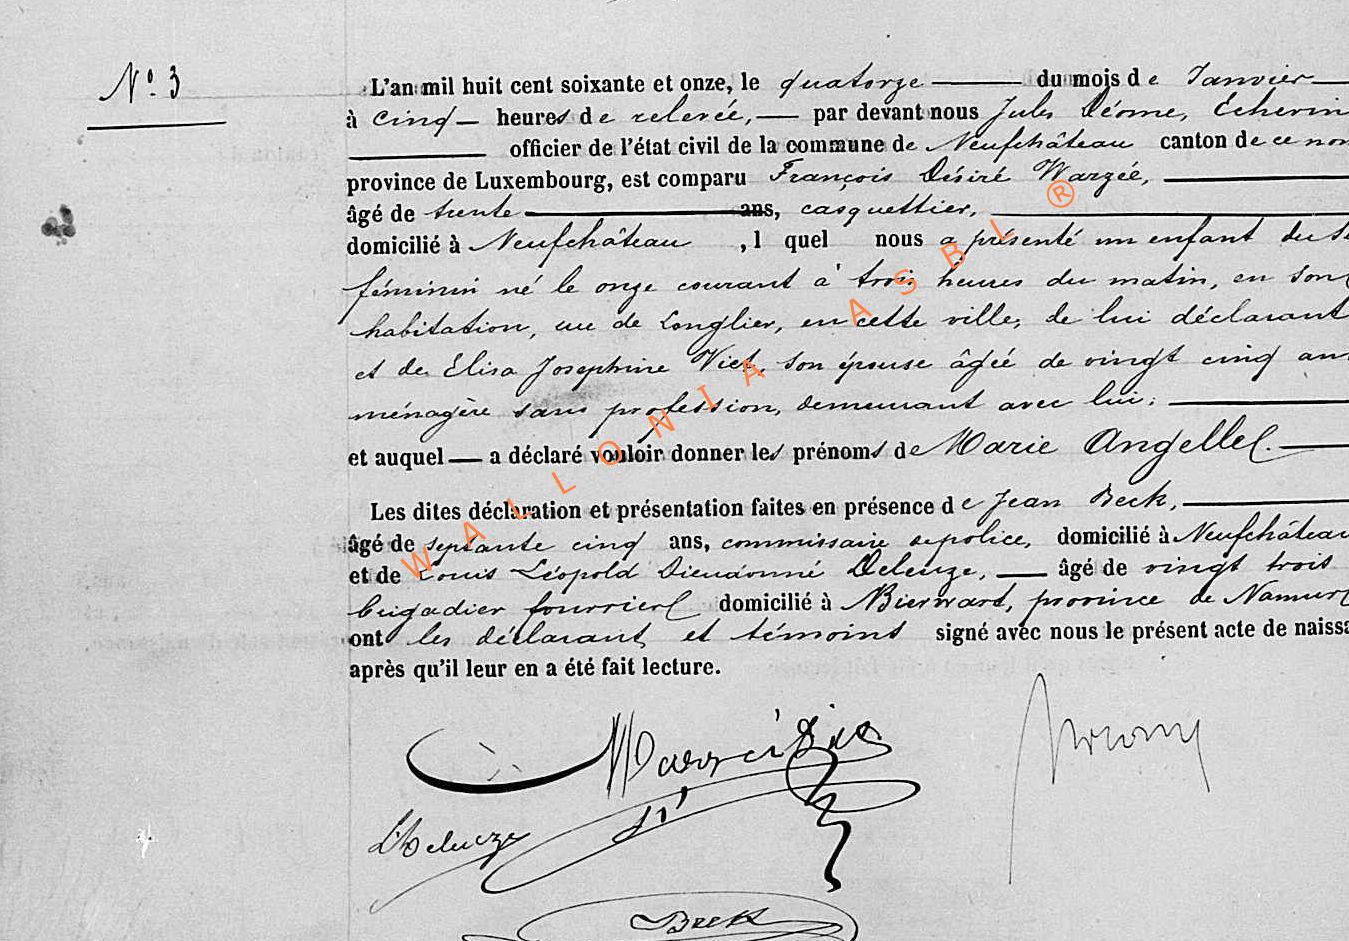 N° 3
L'an mil huit cent soixante et onze, le quatorze du mois de Janvier
à cinq heures de relevée, par devant nous Jules Déome, Echevin
officier de l'état civil de la commune de Neufchâteau canton de ce nom
province de Luxembourg, est comparu François Désiré Warzée,
âgé de trente ans, casquettier,
domicilié à Neufchâteau , l quel nous a présenté un enfant du se
féminin né le onze courant à trois heures du matin, en son
habitation, rue de Longlier, en cette ville, de lui déclarant
et de Elisa Josephine Vict, son épouse âgée de vingt cinq an
ménagère sans profession, demeurant avec lui;
et auquel a déclaré vouloir donner les prénoms de Marie Angelle.
Les dites déclaration et présentation faites en présence de Jean Beck,
âgé de septante cinq ans, commissaire de police, domicilié à Neufchâteau
et de Louis Léopold Dieudonné Deleuze, âgé de vingt trois
brigadier fourrier domicilié à Bierwart, province de Namur
ont les déclarant et témoins signé avec nous le présent acte de naissa
après qu'il leur en a été fait lecture.
Deleuze
Beck
WALLONIA ASBL ®